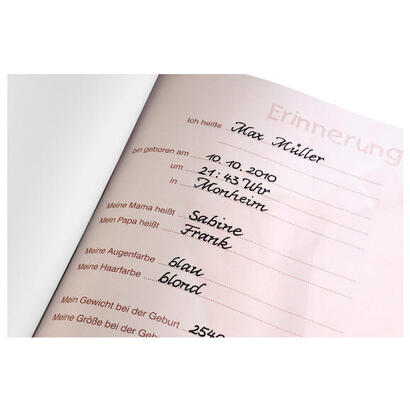 Erinnerung
Ich heiße Max Müller
bin geboren am 10. 10. 2010
um 21:43 Uhr
in Monheim
Meine Mama heißt Sabine
Mein Papa heißt Frank
Meine Augenfarbe blau
Meine Haarfarbe blond
Mein Gewicht bei der Geburt 2540
Meine Größe bei der Geb